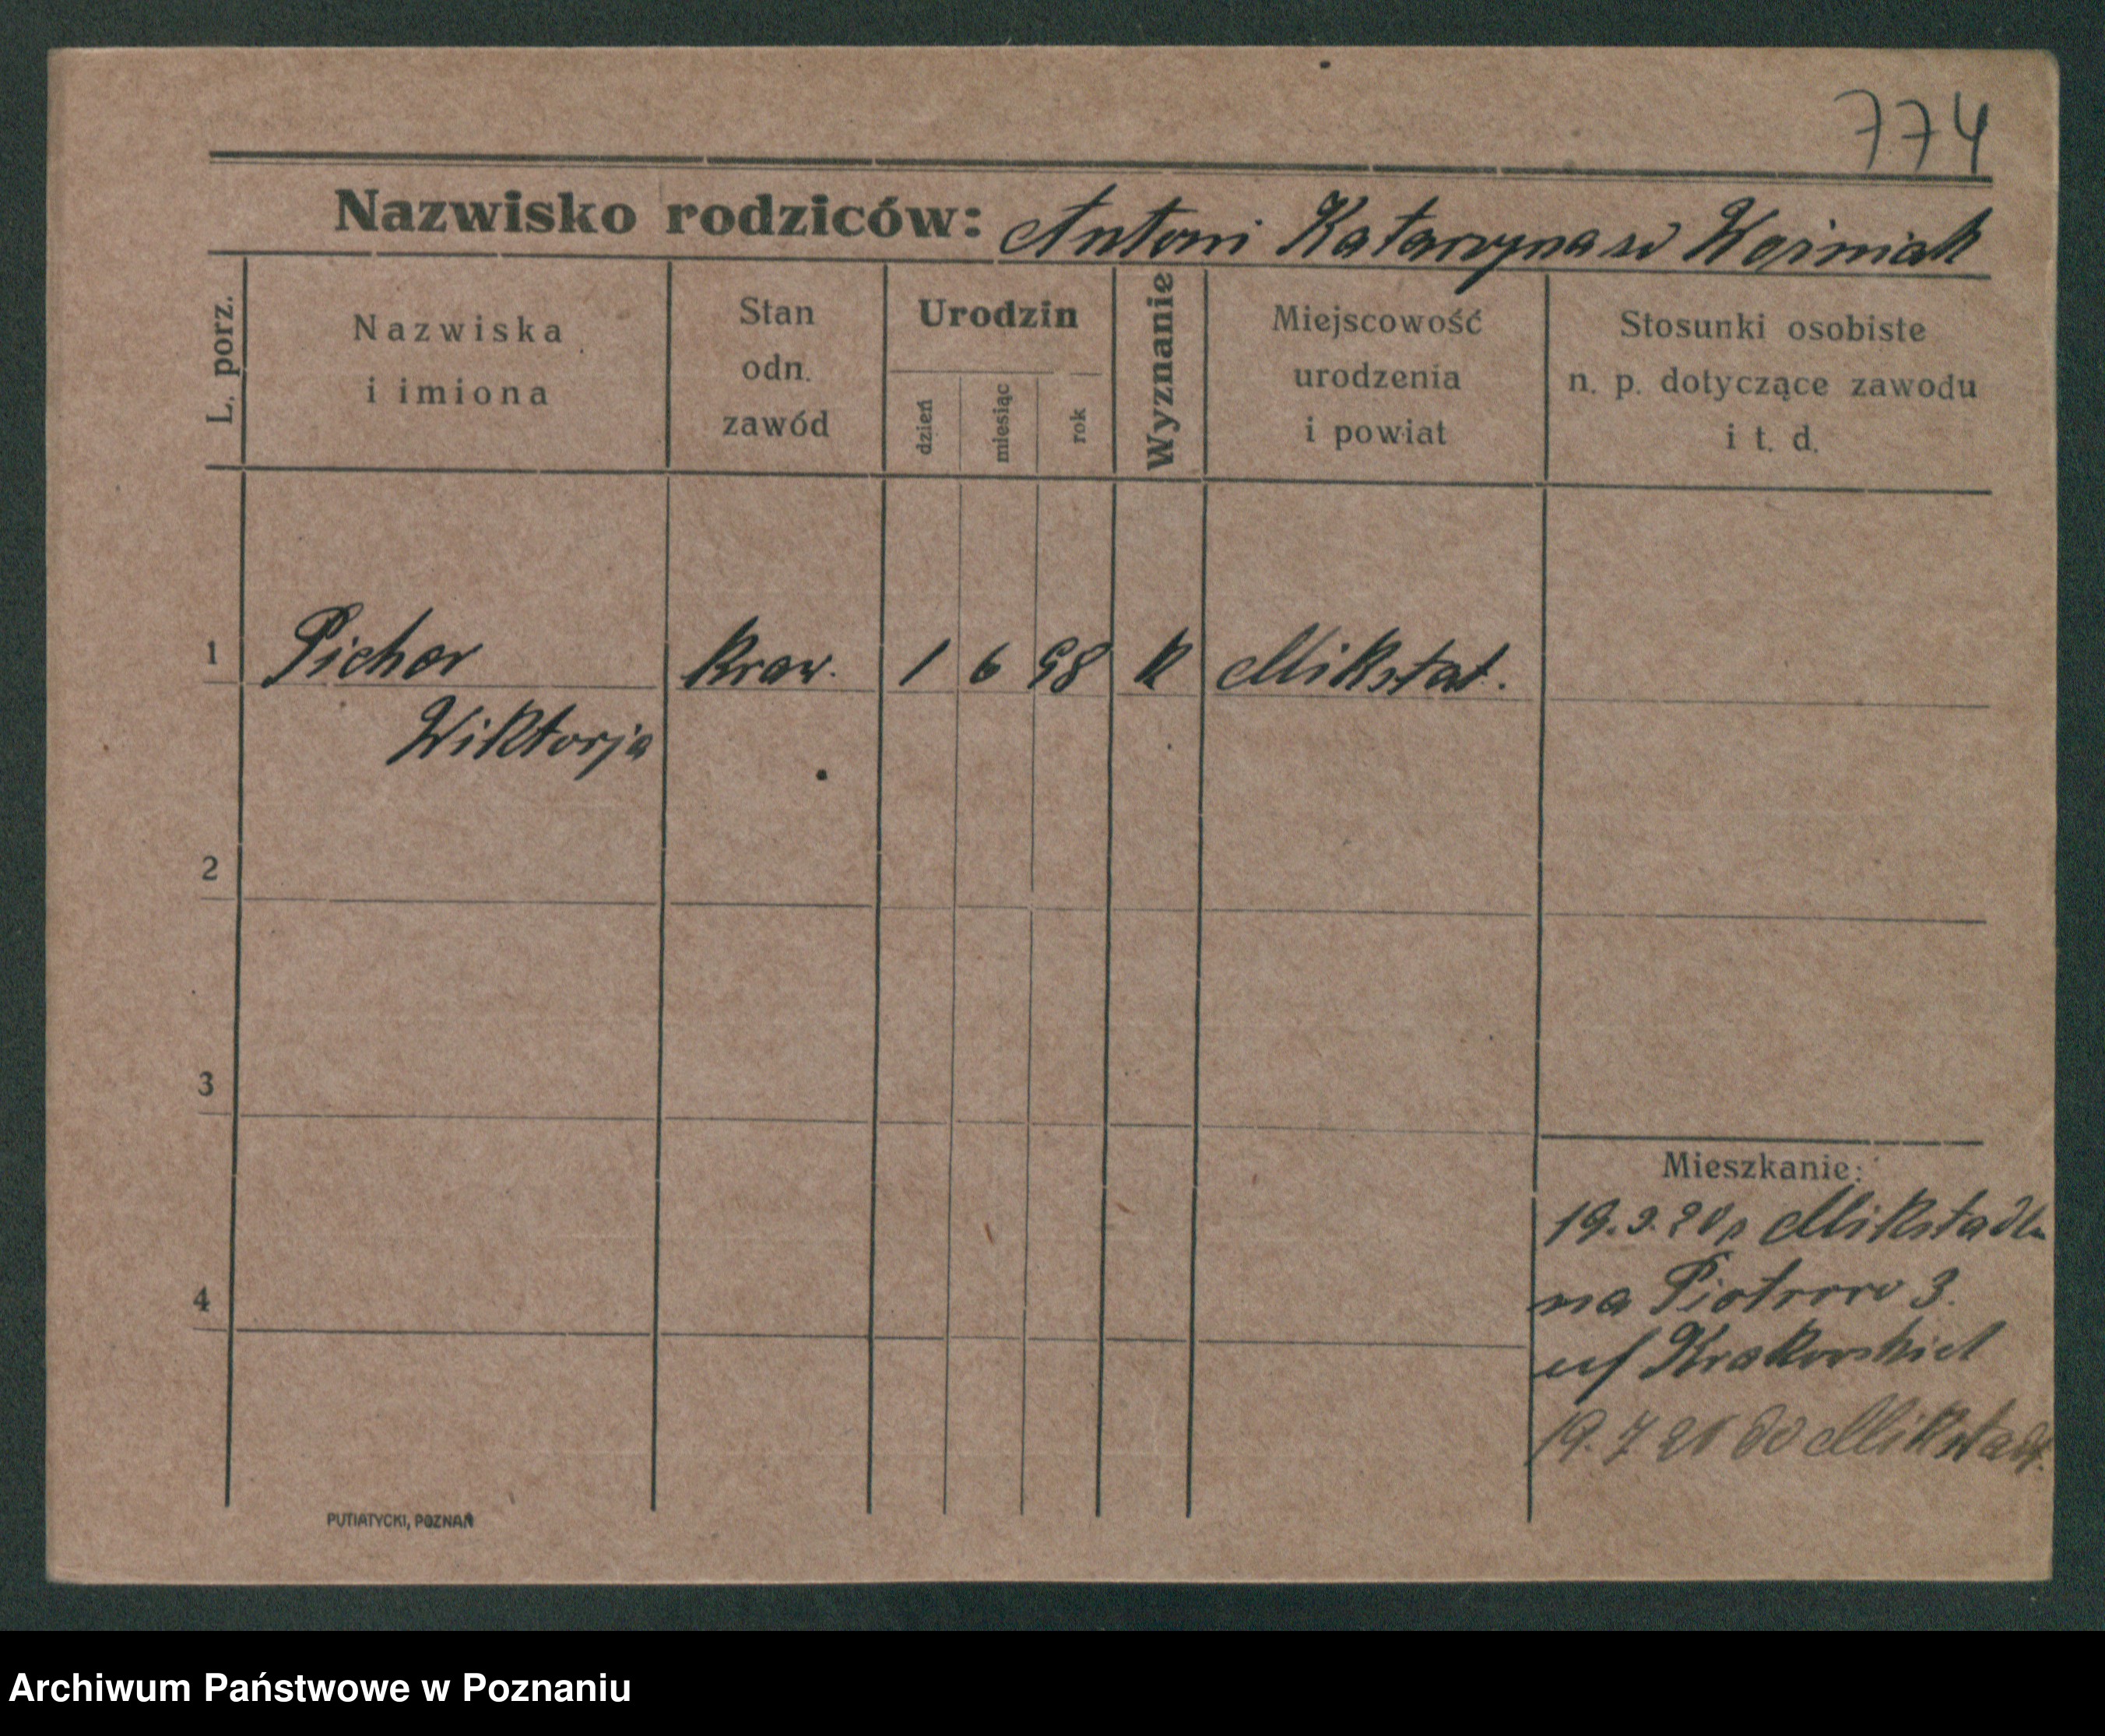 774
Nazwisko rodziców: Antoni Katarzyna
L. porz.
Nazwiska
i imiona
Stan
odn.
zawód
Urodzin
dzień
miesiąc
rok
Wyznanie
Miejscowość
urodzenia
i powiat
Stosunki osobiste
n. p. dotyczące zawodu
i t. d.
1 Picher kraw. 1 6 98 k Mikstat.
Wiktorja
2
3
Mieszkanie:
19. 3. 20
na Piotrowo 3.
4
19. 7 do Mikstadt.
PUTIATYCKI, POZNAŃ
Archiwum Państwowe w Poznaniu